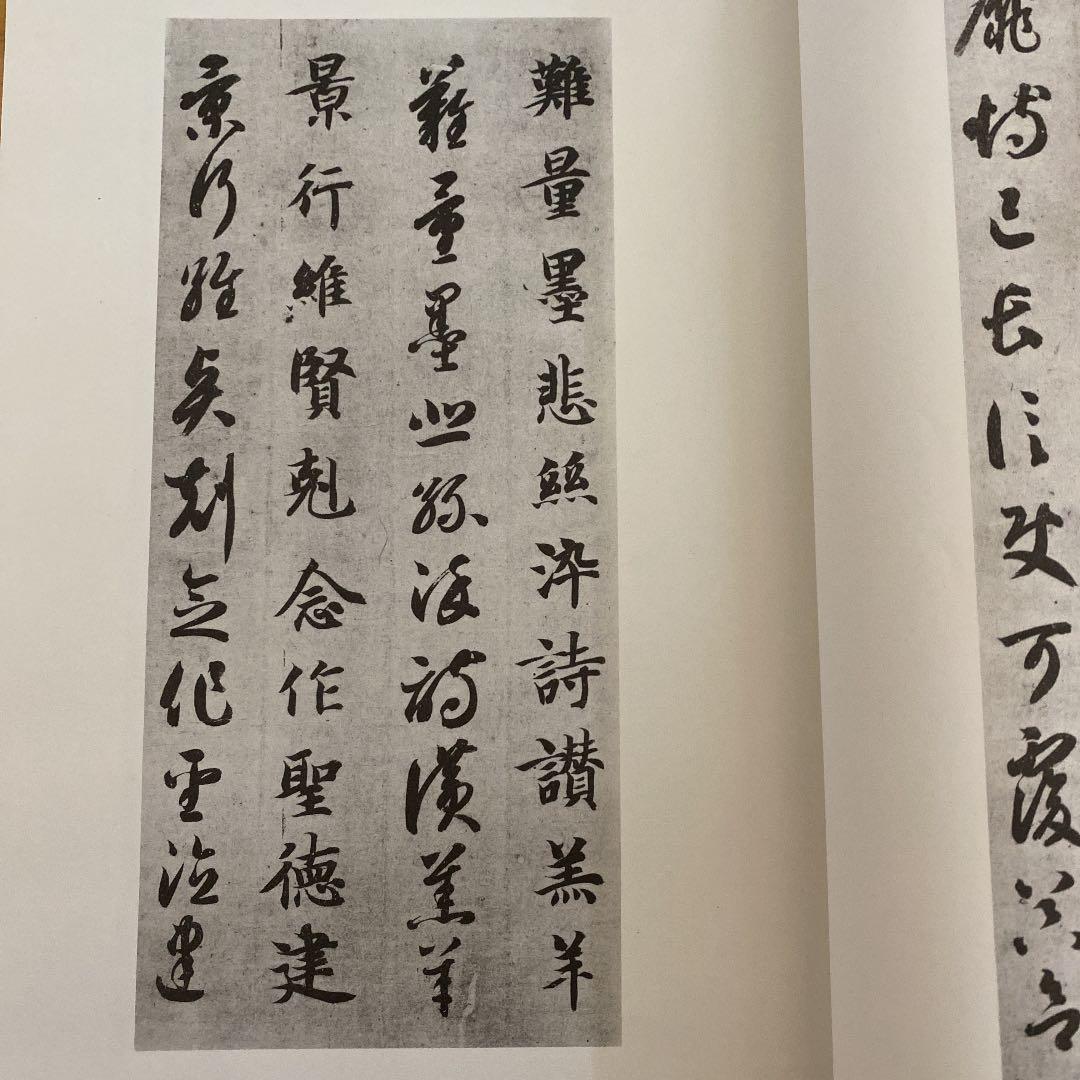 靡恃己長信使可覆器欲
難量墨悲絲淬詩讃羔羊
難量墨悲絲染詩讃羔羊
景行維賢剋念作聖德建
景行維賢剋念作聖德建